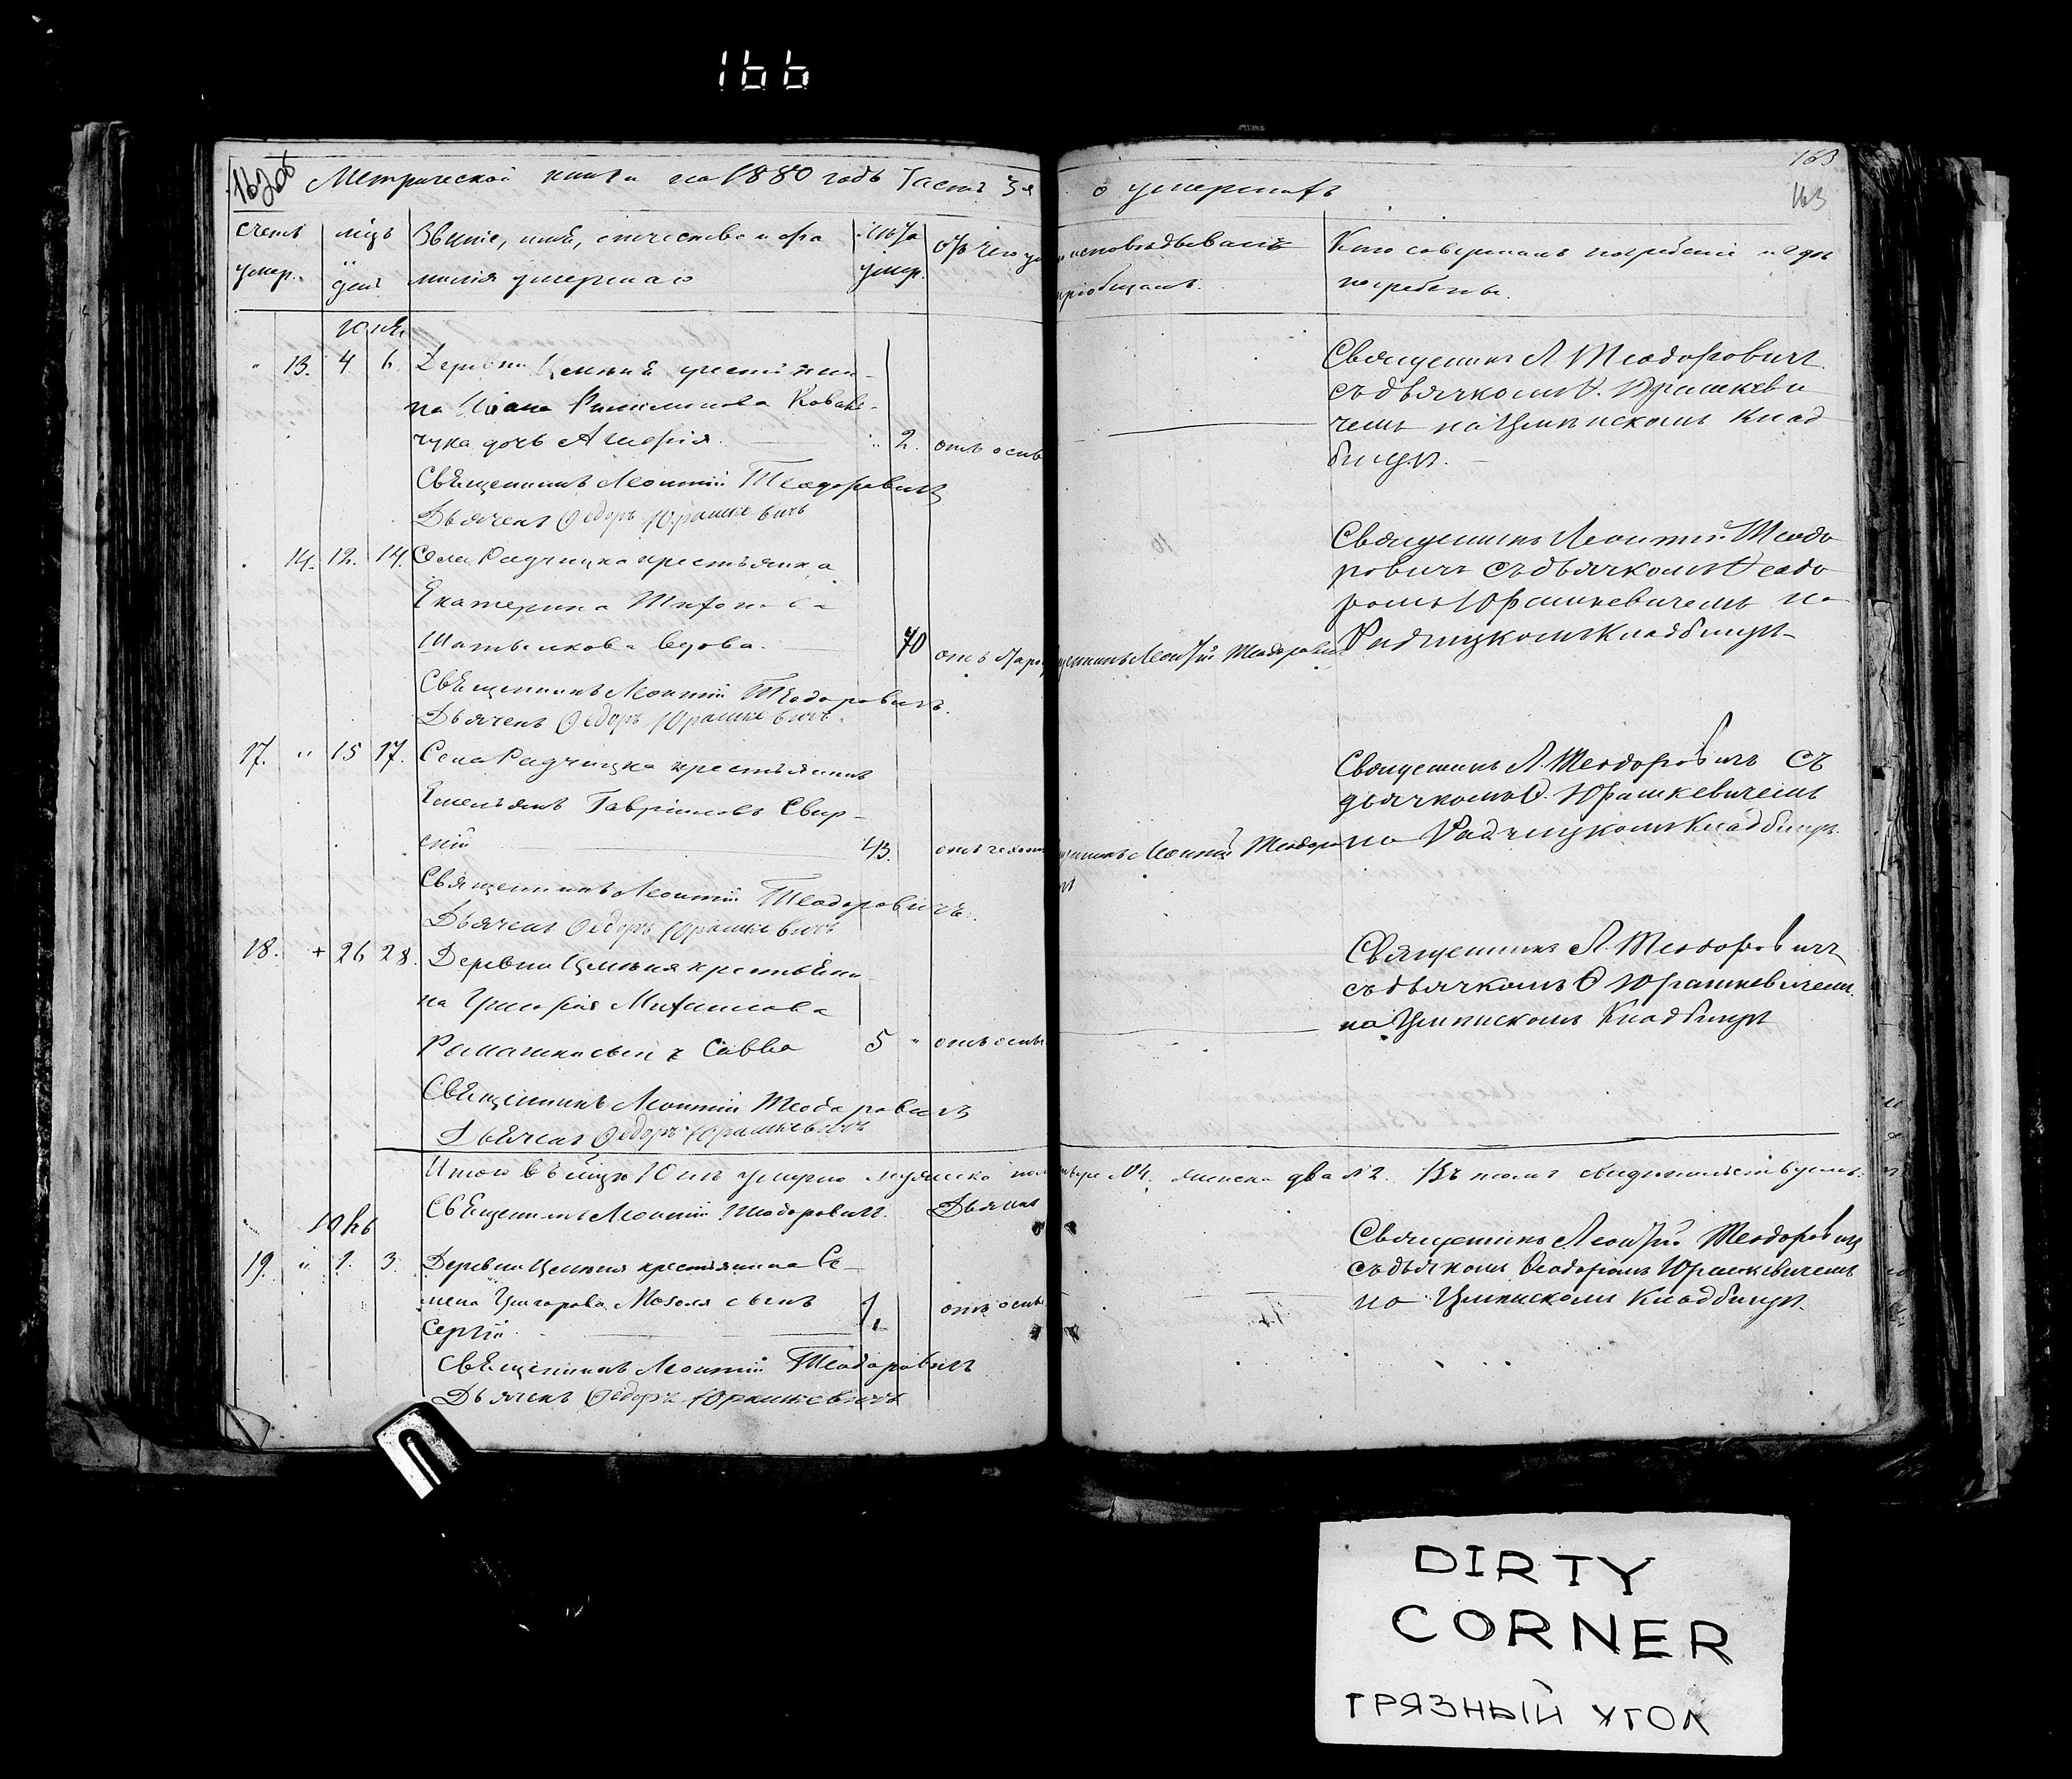 166
162об
Метрической книги на 1880 годъ Часть 3я о умершихъ
163
163
счетъ умер.
мцъ и день
Званіе, имя, отчество и фа
милія умершаго
лѣта умер.
отъ чего
исповѣдывалъ
пріобщалъ.
Кто совершалъ погребеніе и гдѣ
погребены.
Юнь
13. 4 6. Деревни крестьяни-
на Иоана Коваль-
чука дочь 2. отъ оспы
Священникъ Леонтій Теодоровичъ
Дьячекъ Федоръ Юрашкевичъ
Священникъ Л Теодоровичъ
съ дьячкомъ Ѳ. Юрашкеви
чемъ на клад
бищѣ.
14. 12. 14. Села Радчицка крестьянка
Екатерина
вдова. 70 отъ
Священникъ Леонтій Теодоровичъ.
Дьячекъ Федоръ Юрашкевичъ.
Леонтій Теодорови
Священникъ Леонтій Теодо
ровичъ съ дьячкомъ Ѳеодо
ромъ Юрашкевичемъ на
Радчицкомъ кладбищѣ
17. " 15 17. Села Радчицка крестьянинъ
Емельянъ Гавріиловъ Свир-
скій 43. отъ
Священникъ Леонтій Теодоровичъ.
Дьячекъ Федоръ Юрашкевичъ
Леонтій Теодоро
Священникъ Л. Теодоровичъ съ
дьячкомъ Ѳ. Юрашкевичемъ
на Радчицкомъ кладбищѣ.
18. + 26 28. Деревни крестьяни-
на Григорія Михаилова
Савва 5 " отъ оспы
Священникъ Леонтій Теодоровичъ
Дьячекъ Федоръ Юрашкевичъ
Священникъ Л. Теодоровичъ
съ дьячкомъ Ѳ Юрашкевичемъ
на кладбищѣ
Итого въ мцѣ Юнѣ умерло мужеска №4. женска два №2. Въ томъ свидѣтельствуемъ.
Священникъ Леонтій Теодоровичъ. Дьячекъ
19. " 1. 3. Деревни крестьянина Се-
мена Григорова сынъ 1. отъ оспы
Сергій.
Священникъ Леонтій Теодоровичъ
Дьячекъ Федоръ Юрашкевичъ
Священникъ Леонтій Теодоровичъ
съ дьячкомъ Ѳеодоромъ Юрашкевичемъ
на кладбищѣ.
DIRTY
CORNER
ГРЯЗНЫЙ УГОЛ